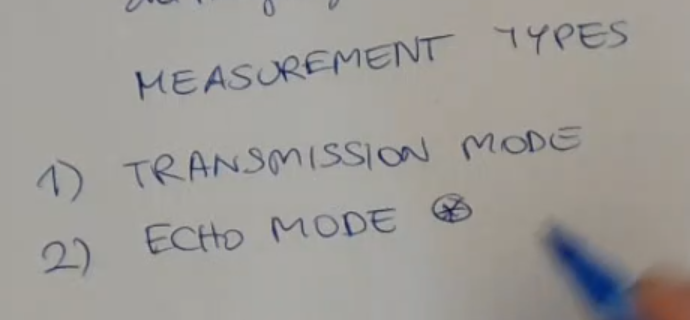 MEASUREMENT TYPES
1) TRANSMISSION MODE
2) ECHO MODE ⊛